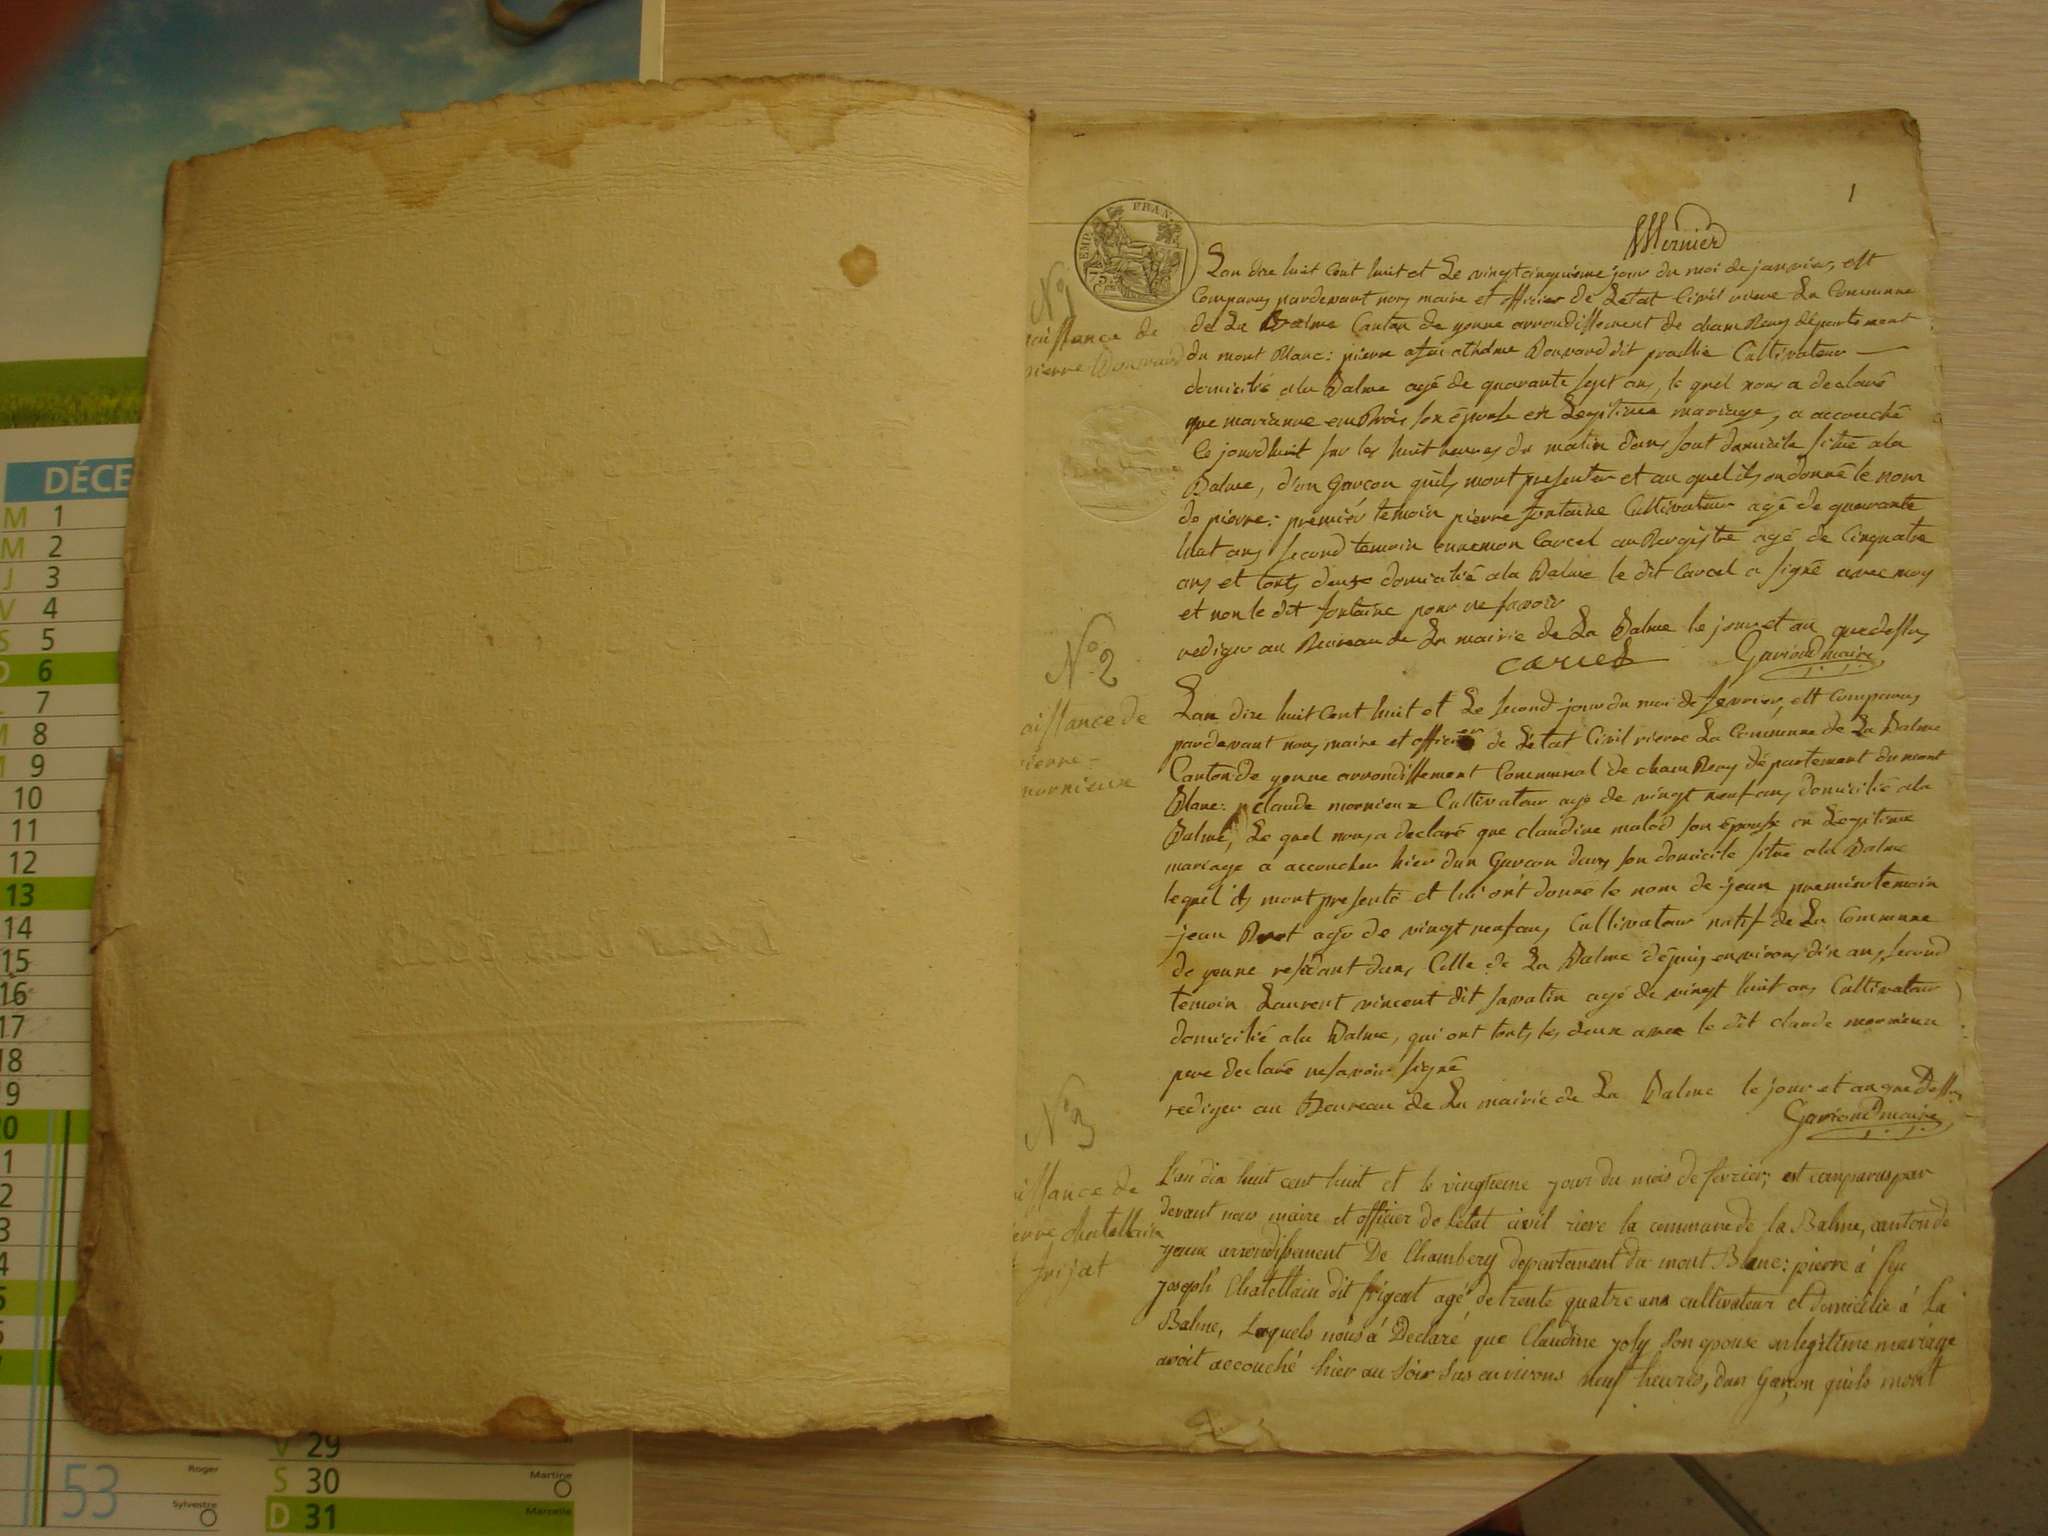 DÉCE
M 1
M 2
J 3
V 4
S 5
D 6
7
M 8
9
10
11
12
13
14
15
16
17
18
29
S 30
D 31
53
Roger
Sylvestre
Martine
Marcelle
1
EMP. FRAN.
N° 1
naissance de
pierre
Lan dix huit Cent huit et Le vingt cinquieme jour du moi de janvier, est
Comparus pardevant nous maire et officier de Letat Civil riere La Commune
de La Balme Canton de yenne arrondissement de chambery département
du mont Blanc: pierre a feu Cultivateur
domicilié ala Balme agé de quarante sept ans, le quel nous a declaré
que marianne son épouse en Legitime mariage, a accouché
Ce jourdhuit sur les huit heures du matin dans sont domicile situé ala
Balme, d'un Garcon quils mont presenter et au quel ils on donné le nom
de pierre: premiér temoin pierre fontaine Cultivateur agé de quarante
huit ans second temoin ennemon Carcel agé de Cinquante
ans et touts deux domicilié ala Balme le dit Carcel a signé avec moy
et non le dit fontaine pour ne savoir
rediger au Bureau de La mairie de La Balme le jour et an que dessus
carcel Garioud maire
N° 2
naissance de
pierre
mornieux
Lan dix huit Cent huit et Le second jour du moi de fevrier, est Comparus
pardevant nous maire et officier de Létat Civil rierre La Commune de La Balme
Canton de yenne arrondissement Communal de chambery département du mont
Blanc: claude mornieux Cultivateur agé de vingt neuf ans domicilié ala
Balme, Le quel nous a declaré que claudine malod son épouse en Legitime
mariage a accoucher hier dun Garcon dans son domicile situé ala Balme
lequel ils mont presenté et lui ont donné le nom de jean premier temoin
jean agé de vingt neuf ans Cultivateur natif de La Commune
de yenne residant dans Celle de La Balme dépuis environs dix ans, second
temoin Laurent vincent dit savatin agé de vingt huit ans Cultivateur
domicilié ala Balme, qui ont touts les deux avec le dit claude mornieux
pere declaré ne savoir signé
rediger au Boureau de La mairie de La Balme le jour et an que Dessus
Garioud maire
N° 3
naissance de
pierre chatellain
frijat
L'an dix huit cent huit et le vingtieme jour du mois de fevrier; est comparus par
devant nous maire et officier de L'etat civil riere la commune de la Balme, canton de
yenne arrondissement De Chambery departement du mont Blanc: pierre á feu
joseph Chatellain dit frigeat agé de trente quatre ans cultivateur et domicilié á La
Balme, Lequels nous á Declaré que Claudine joly son epouse en legitime mariage
avoit accouché hier au soir sus environs neuf heures, dun Garçon quils mont